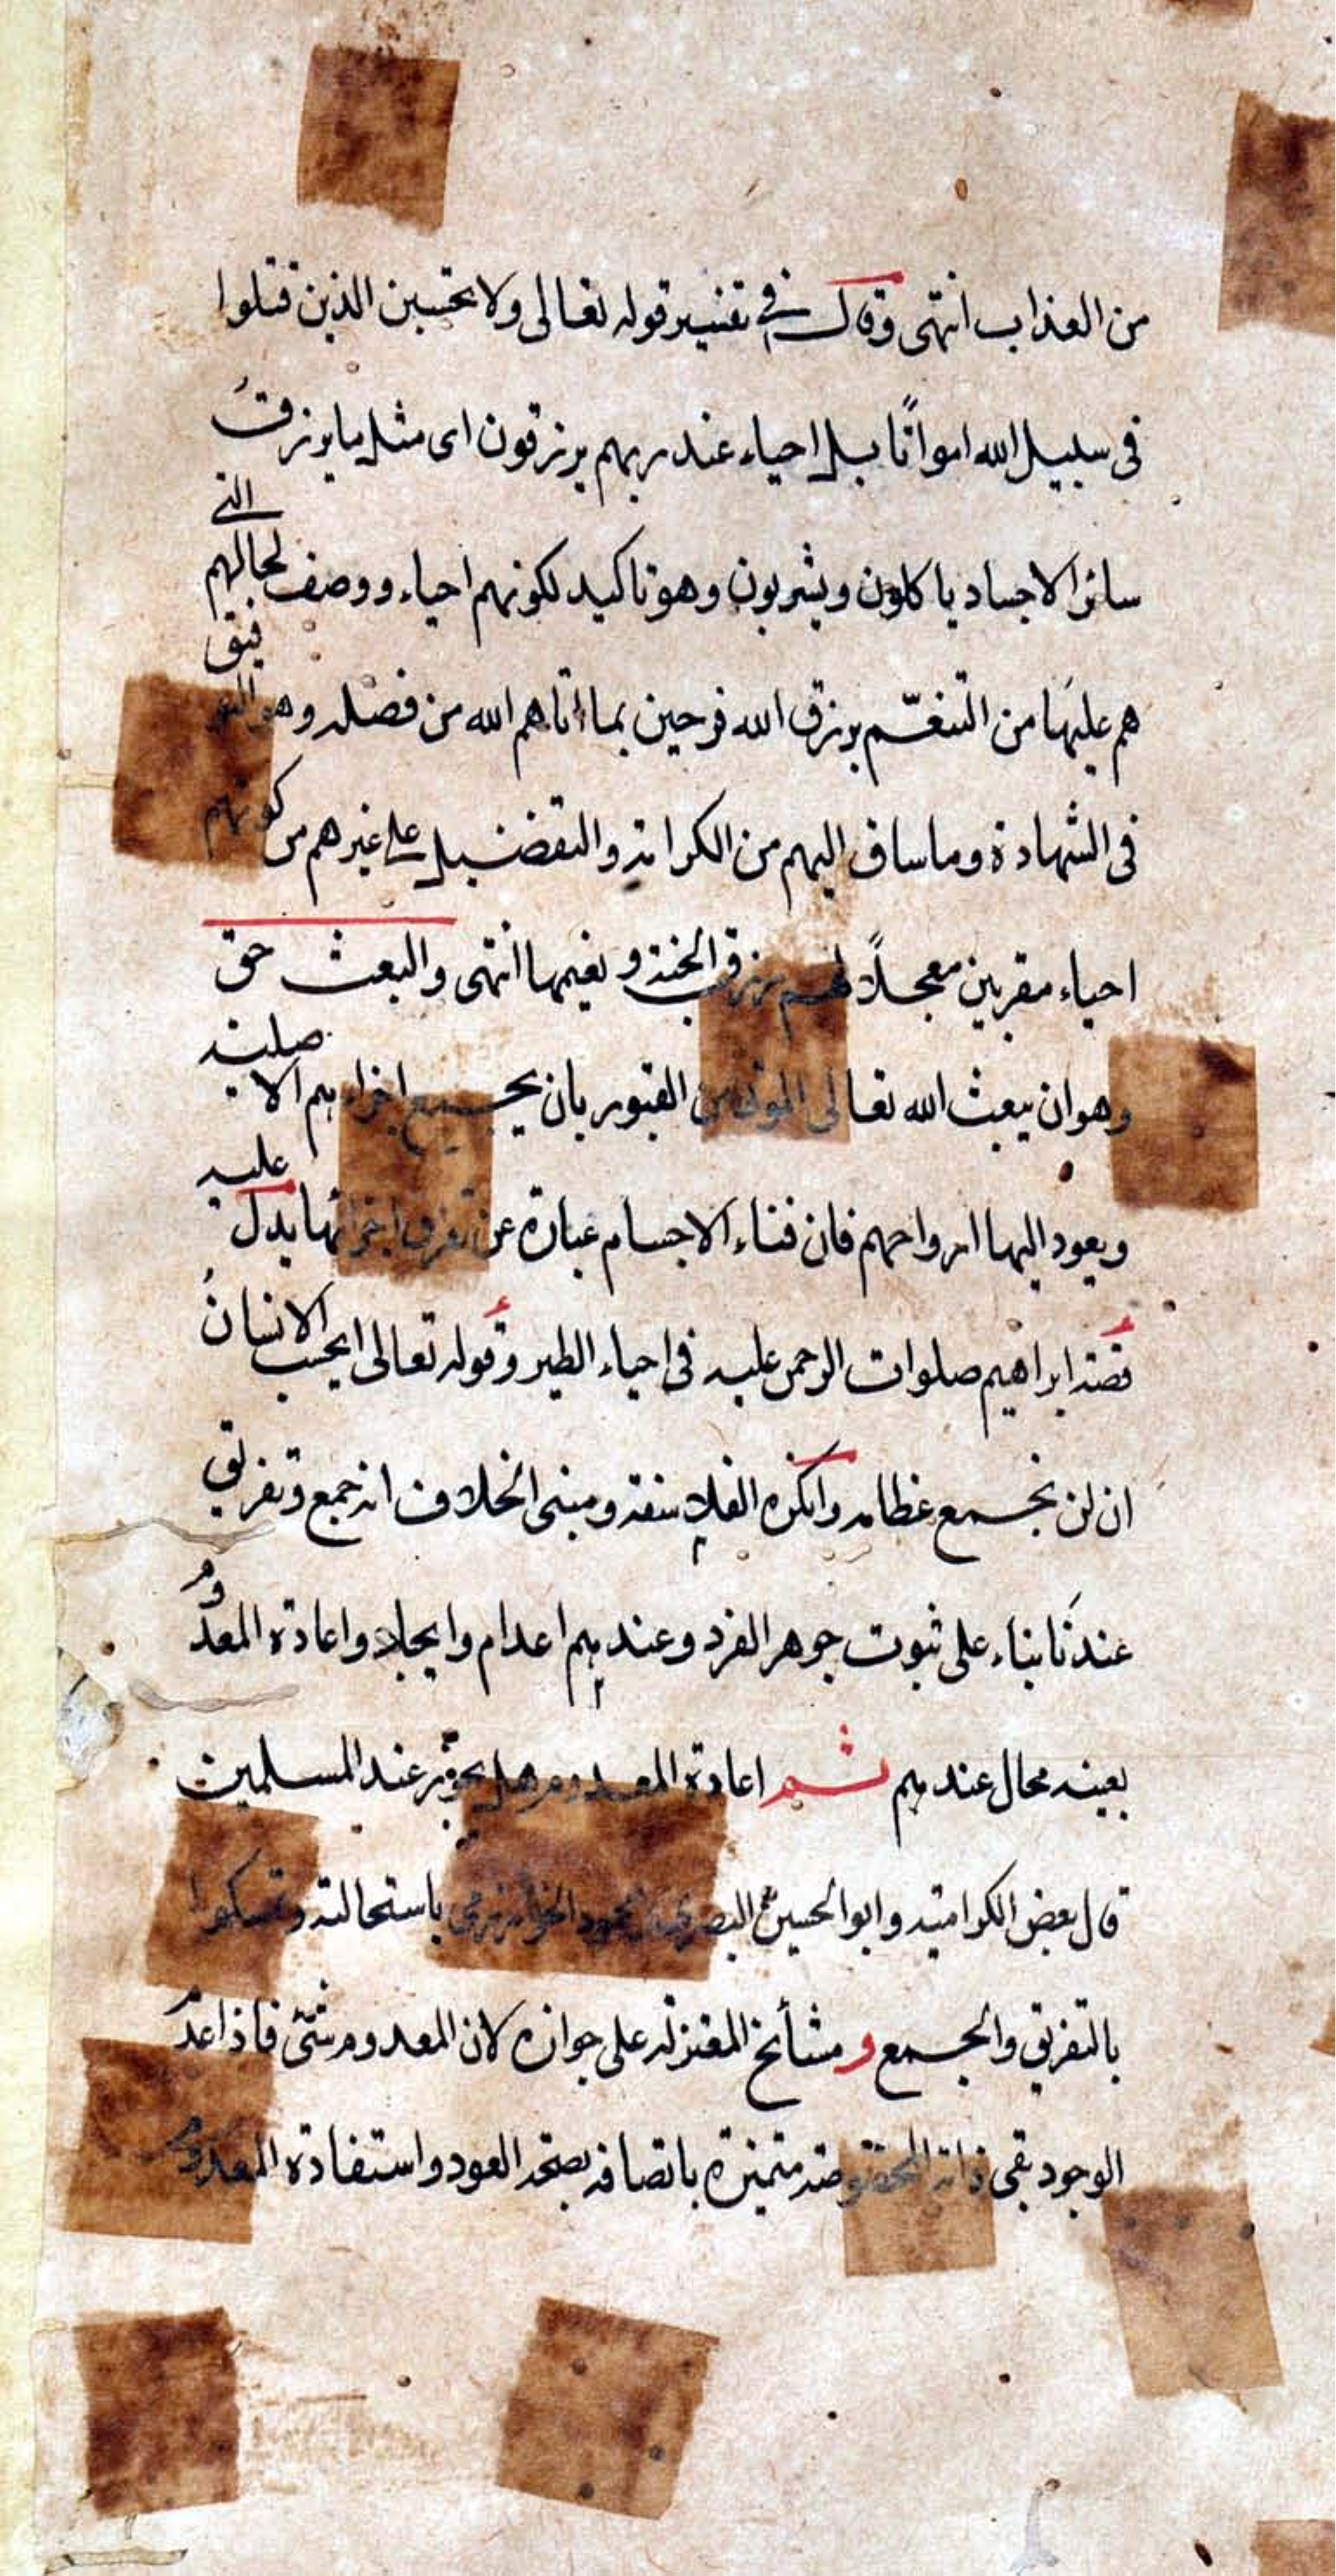 من العذاب انتهى وقال في تفسير قوله تعالى ولا تحسبن الذين قتلوا
فى سبيل الله امواتًا بل احياء عند ربهم يرزقون اى مثل ما يرزقُ
سائر الاجساد ياكلون ويشربون وهو تاكيد لكونهم احياء ووصف لحالهم التى
هم عليهَا من التنعّم برزق الله فرحين بما اتاهم الله من فضله وهو التوفيق
فى الشهادة وما ساق اليهم من الكرامة والتفضيل على غيرهم من كونهم
احياء مقربين معجلًا لهم رزق الجنة ونعيمها انتهى والبعث حق
وهو ان يبعث الله تعالى الموتى من القبور بان يجمع اجزاءهم الاصلية
ويعود اليها ارواحهم فان فناء الاجسام عبارة عن تفرق اجزائها يدل عليه
قصة ابراهيم صلوات الرحمن عليه فى احياء الطير وقوله تعالى ايحسب الانسانُ
ان لن نجمع عظامه وانكره الفلاسفة ومبنى الخلاف انه جمع وتفريق
عندنَا بناء على ثبوت جوهر الفرد وعندهم اعدام وايجاد واعادة المعدُوم
بعينه محال عندهم ثم اعادة المعدوم هل يجوز عند المسلمين
قال بعض الكرامية وابو الحسين البصرى ومحمود الخوارزمى باستحالته وتمسكوا
بالتفريق والجمع و مشأيخ المعتزلة على جوازه لان المعدوم شئ فاذا عدم
الوجود بقى ذاته المخصوصة متميزة باتصافه بصحة العود واستفادة المعدوم